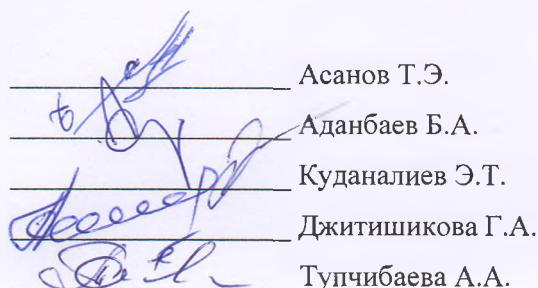 Асанов Т.Э.
Аданбаев Б.А.
Куданалиев Э.Т.
Джитишикова Г.А.
Тупчибаева А.А.